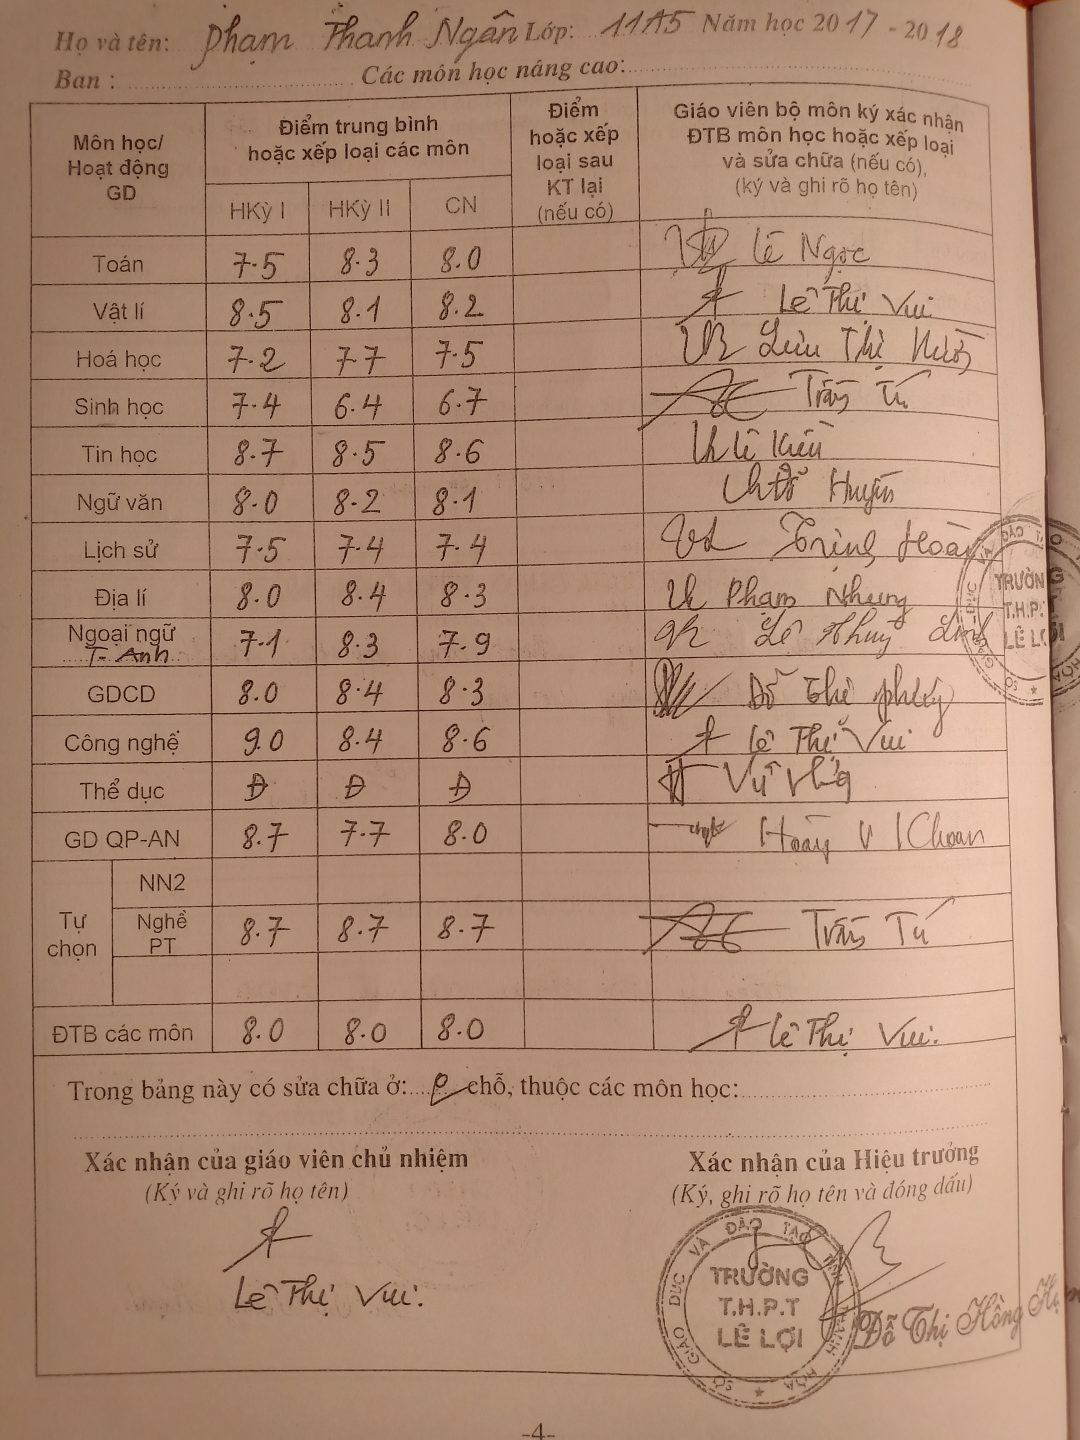 Họ và tên: Phạm Thanh Ngân Lớp: 11A5 Năm học 2017 - 2018
Ban : Các môn học nâng cao:
Môn học/ Hoạt động GD
Điểm trung bình hoặc xếp loại các môn
HKỳ I HKỳ II CN
Điểm hoặc xếp loại sau KT lại (nếu có)
Giáo viên bộ môn ký xác nhận ĐTB môn học hoặc xếp loại và sửa chữa (nếu có), (ký và ghi rõ họ tên)
Toán 7.5 8.3 8.0 Lê Ngọc
Vật lí 8.5 8.1 8.2 Lê Thị Vui
Hoá học 7.2 7.7 7.5 Lưu Thị
Sinh học 7.4 6.4 6.7 Trần Tú
Tin học 8.7 8.5 8.6 Lê Kiều
Ngữ văn 8.0 8.2 8.1 Đỗ Huyền
Lịch sử 7.5 7.4 7.4 Trịnh Hoàn
Địa lí 8.0 8.4 8.3 Phạm Nhung
Ngoại ngữ T- Anh 7.1 8.3 7.9 Lê Thuỳ Linh
GDCD 8.0 8.4 8.3 Đỗ Thế
Công nghệ 9.0 8.4 8.6 Lê Thị Vui
Thể dục Đ Đ Đ Vũ
GD QP-AN 8.7 7.7 8.0 Hoàng V Khoan
Tự chọn
NN2
Nghề PT 8.7 8.7 8.7 Trần Tú
ĐTB các môn 8.0 8.0 8.0 Lê Thị Vui.
Trong bảng này có sửa chữa ở: 0 chỗ, thuộc các môn học:
Xác nhận của giáo viên chủ nhiệm
(Ký và ghi rõ họ tên)
Lê Thị Vui.
Xác nhận của Hiệu trưởng
(Ký, ghi rõ họ tên và đóng dấu)
SỞ GIÁO DỤC VÀ ĐÀO TẠO TỈNH THANH HÓA
TRƯỜNG
T.H.P.T
LÊ LỢI
Đỗ Thị Hồng
-4-